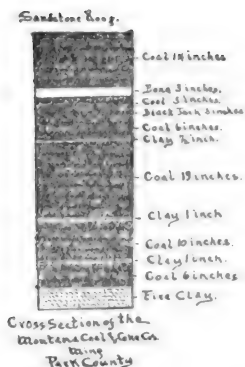 Sandstone Roof.
Coal 14 inches
Bone 3 inches.
Coal 3 inches
Black Jack 3 inches
Coal 6 inches.
Clay ½ inch.
Coal 19 inches.
Clay 1 inch
Coal 10 inches
Clay 1 inch.
Coal 6 inches
Fire Clay.
Cross Section of the
Montana Coal & Coke Co's
Mine
Park County